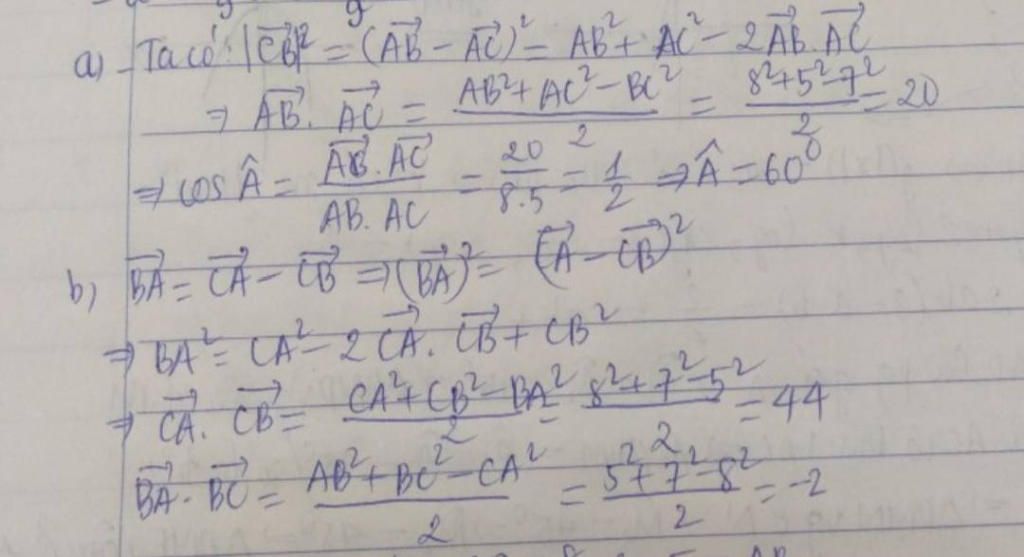 a) Ta có: |CB⃗|² = (AB⃗ - AC⃗)² = AB² + AC² - 2AB⃗.AC⃗
⇒ AB⃗. AC⃗ = (AB² + AC² - BC²)/2 = (8² + 5² - 7²)/2 = 20
⇒ cos Â = (AB⃗.AC⃗)/(AB.AC) = 20/(8.5) = 1/2 ⇒ Â = 60⁰
b) BA⃗ = CA⃗ - CB⃗ ⇒ (BA⃗)² = (CA⃗ - CB⃗)²
⇒ BA² = CA² - 2CA⃗. CB⃗ + CB²
⇒ CA⃗. CB⃗ = (CA² + CB² - BA²)/2 = (8² + 7² - 5²)/2 = 44
BA⃗ . BC⃗ = (AB² + BC² - CA²)/2 = (5² + 7² - 8²)/2 = -2